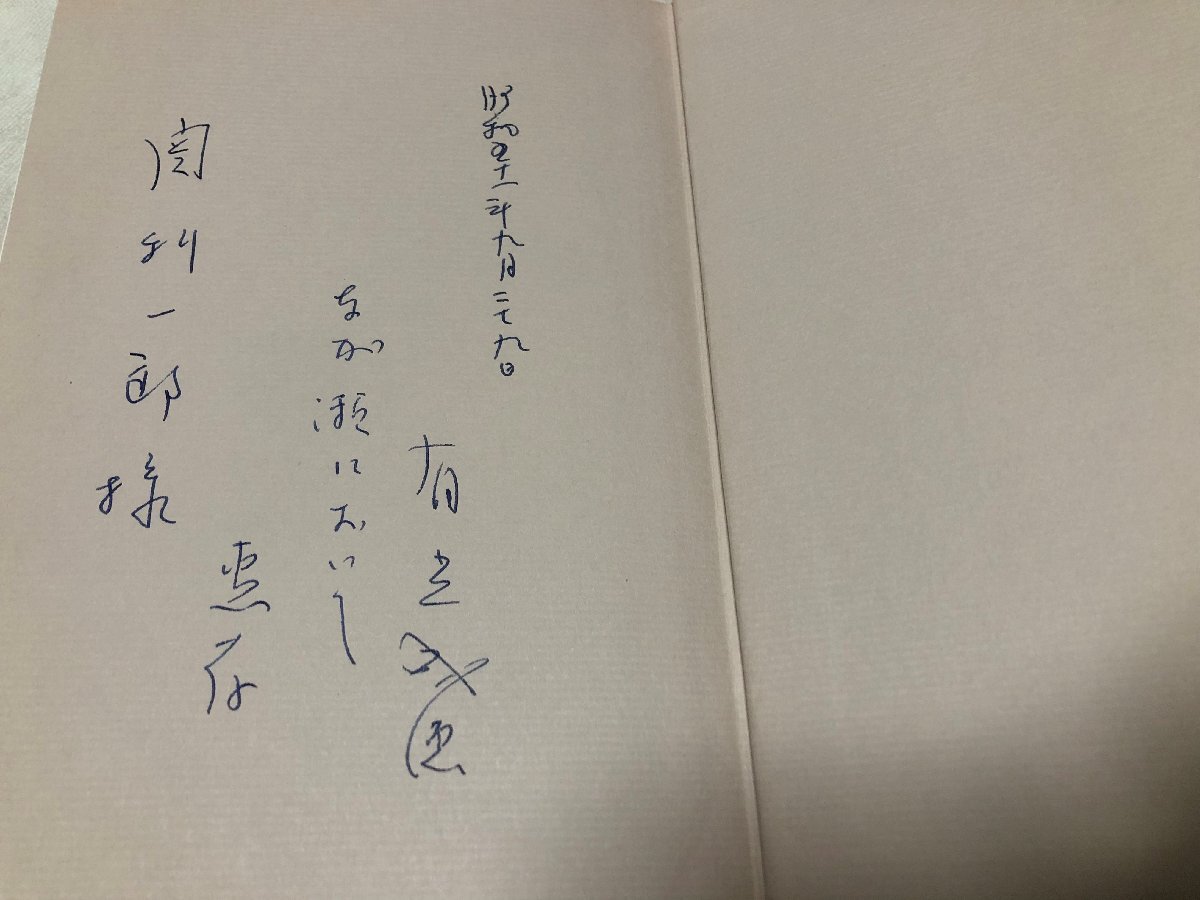 昭和五十一年九月二十九日
有光成徳
なが瀬において
関利一郎様
恵存